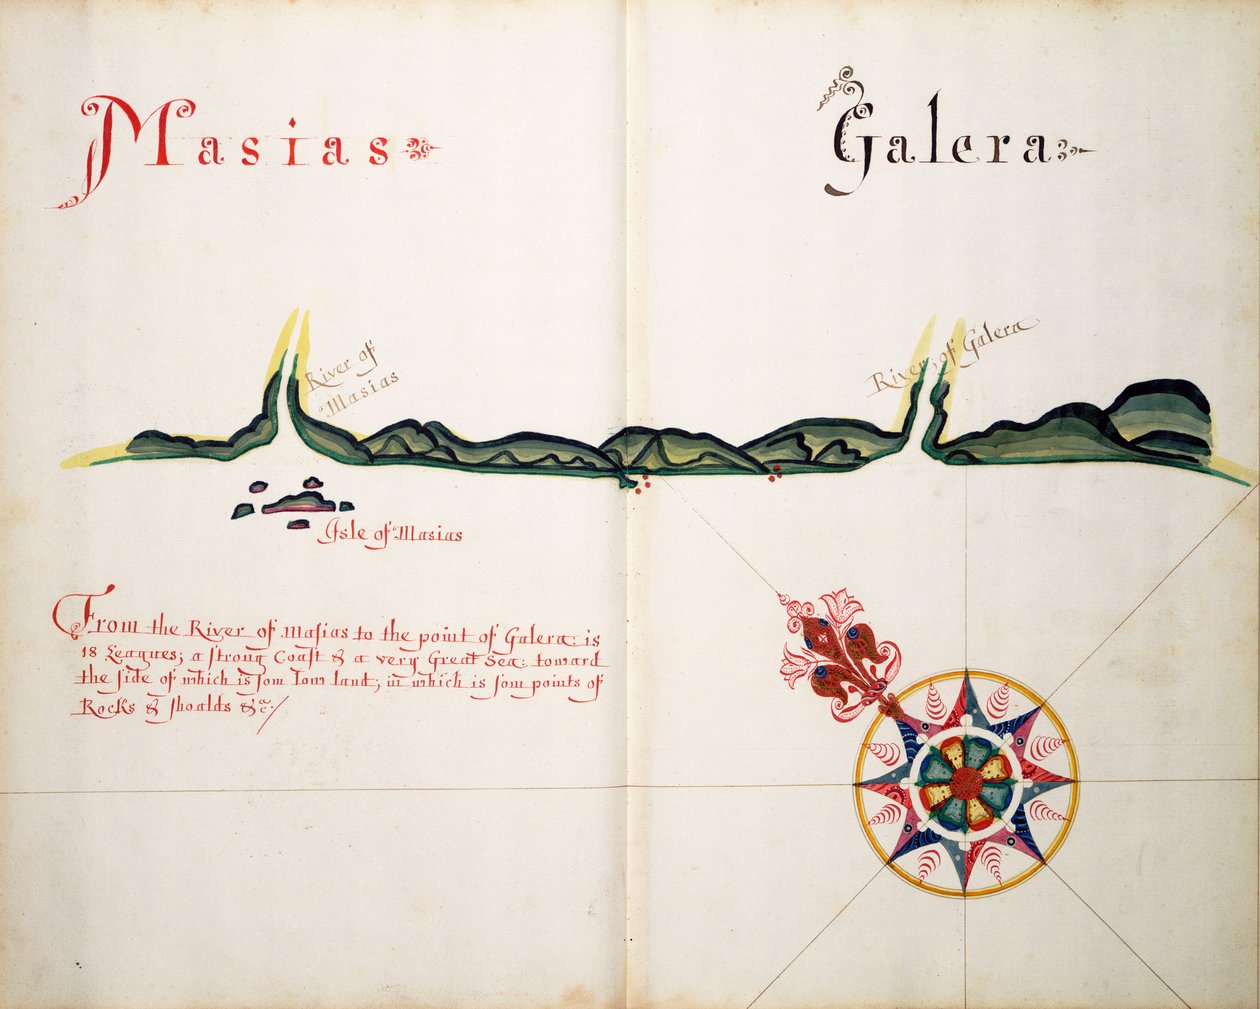 Masias
Galera
River of
Masias
River of Galera
Isle of Masias
From the River of Masias to the point of Galera: is
18 Leagues; a strong Coast & a very Great Sea: toward
the side of which is som low land; in which is som points of
Rocks & shoalds &c.